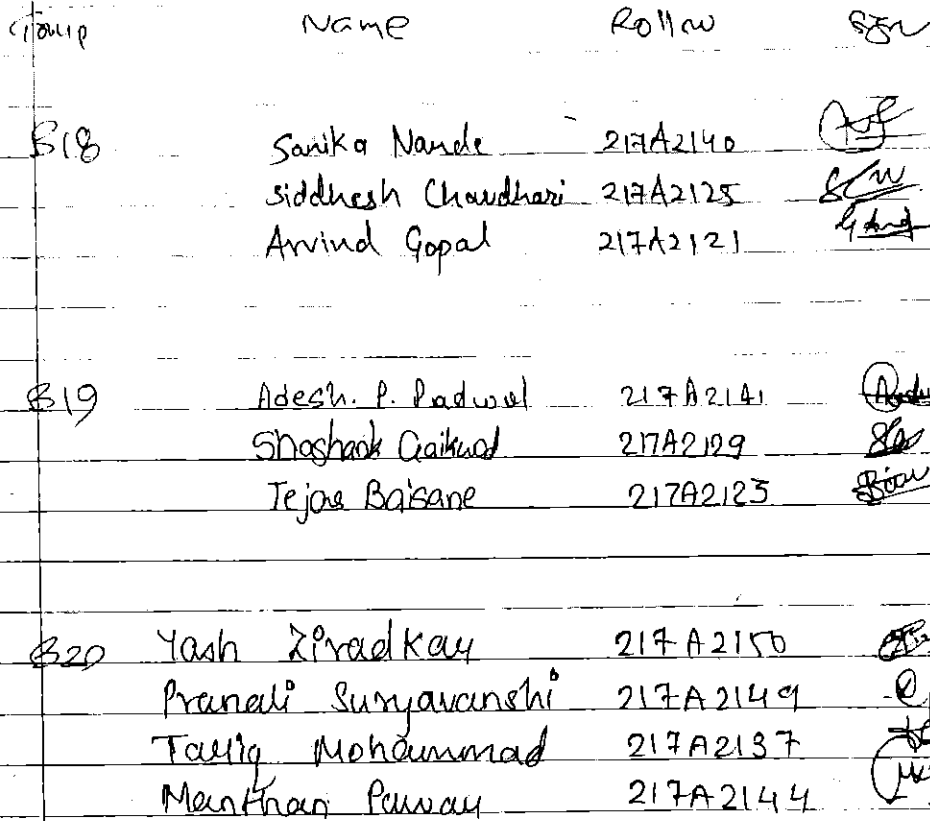 Group Name Roll no Sign
B18 Sanika Nande 217A2140
Siddhesh Chaudhari 217A2125
Arvind Gopal 217A2121
B19 Adesh. P. Padwal 217A2141
Shashank Gaikwad 217A2129
Tejas Baisane 217A2123
B20 Yash Ziradkar 217A2150
Pranali Suryavanshi 217A2149
Tariq Mohammad 217A2137
Manthan Pawar 217A2144